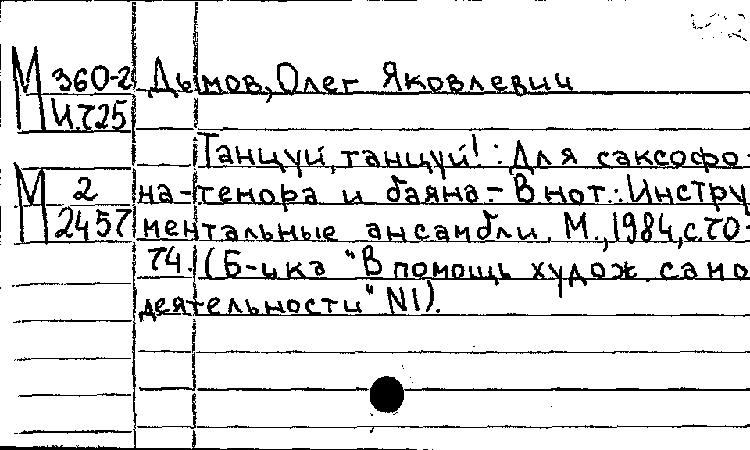 М 360-2 Дымов, Олег Яковлевич
И.725
Танцуй, танцуй! : Для саксофо-
М 2 на-тенора и баяна.- В нот.: Инстру
2457 ментальные ансамбли. М., 1984, с.70-
74. (Б-чка "В помощь худож. само
деятельности" №1).